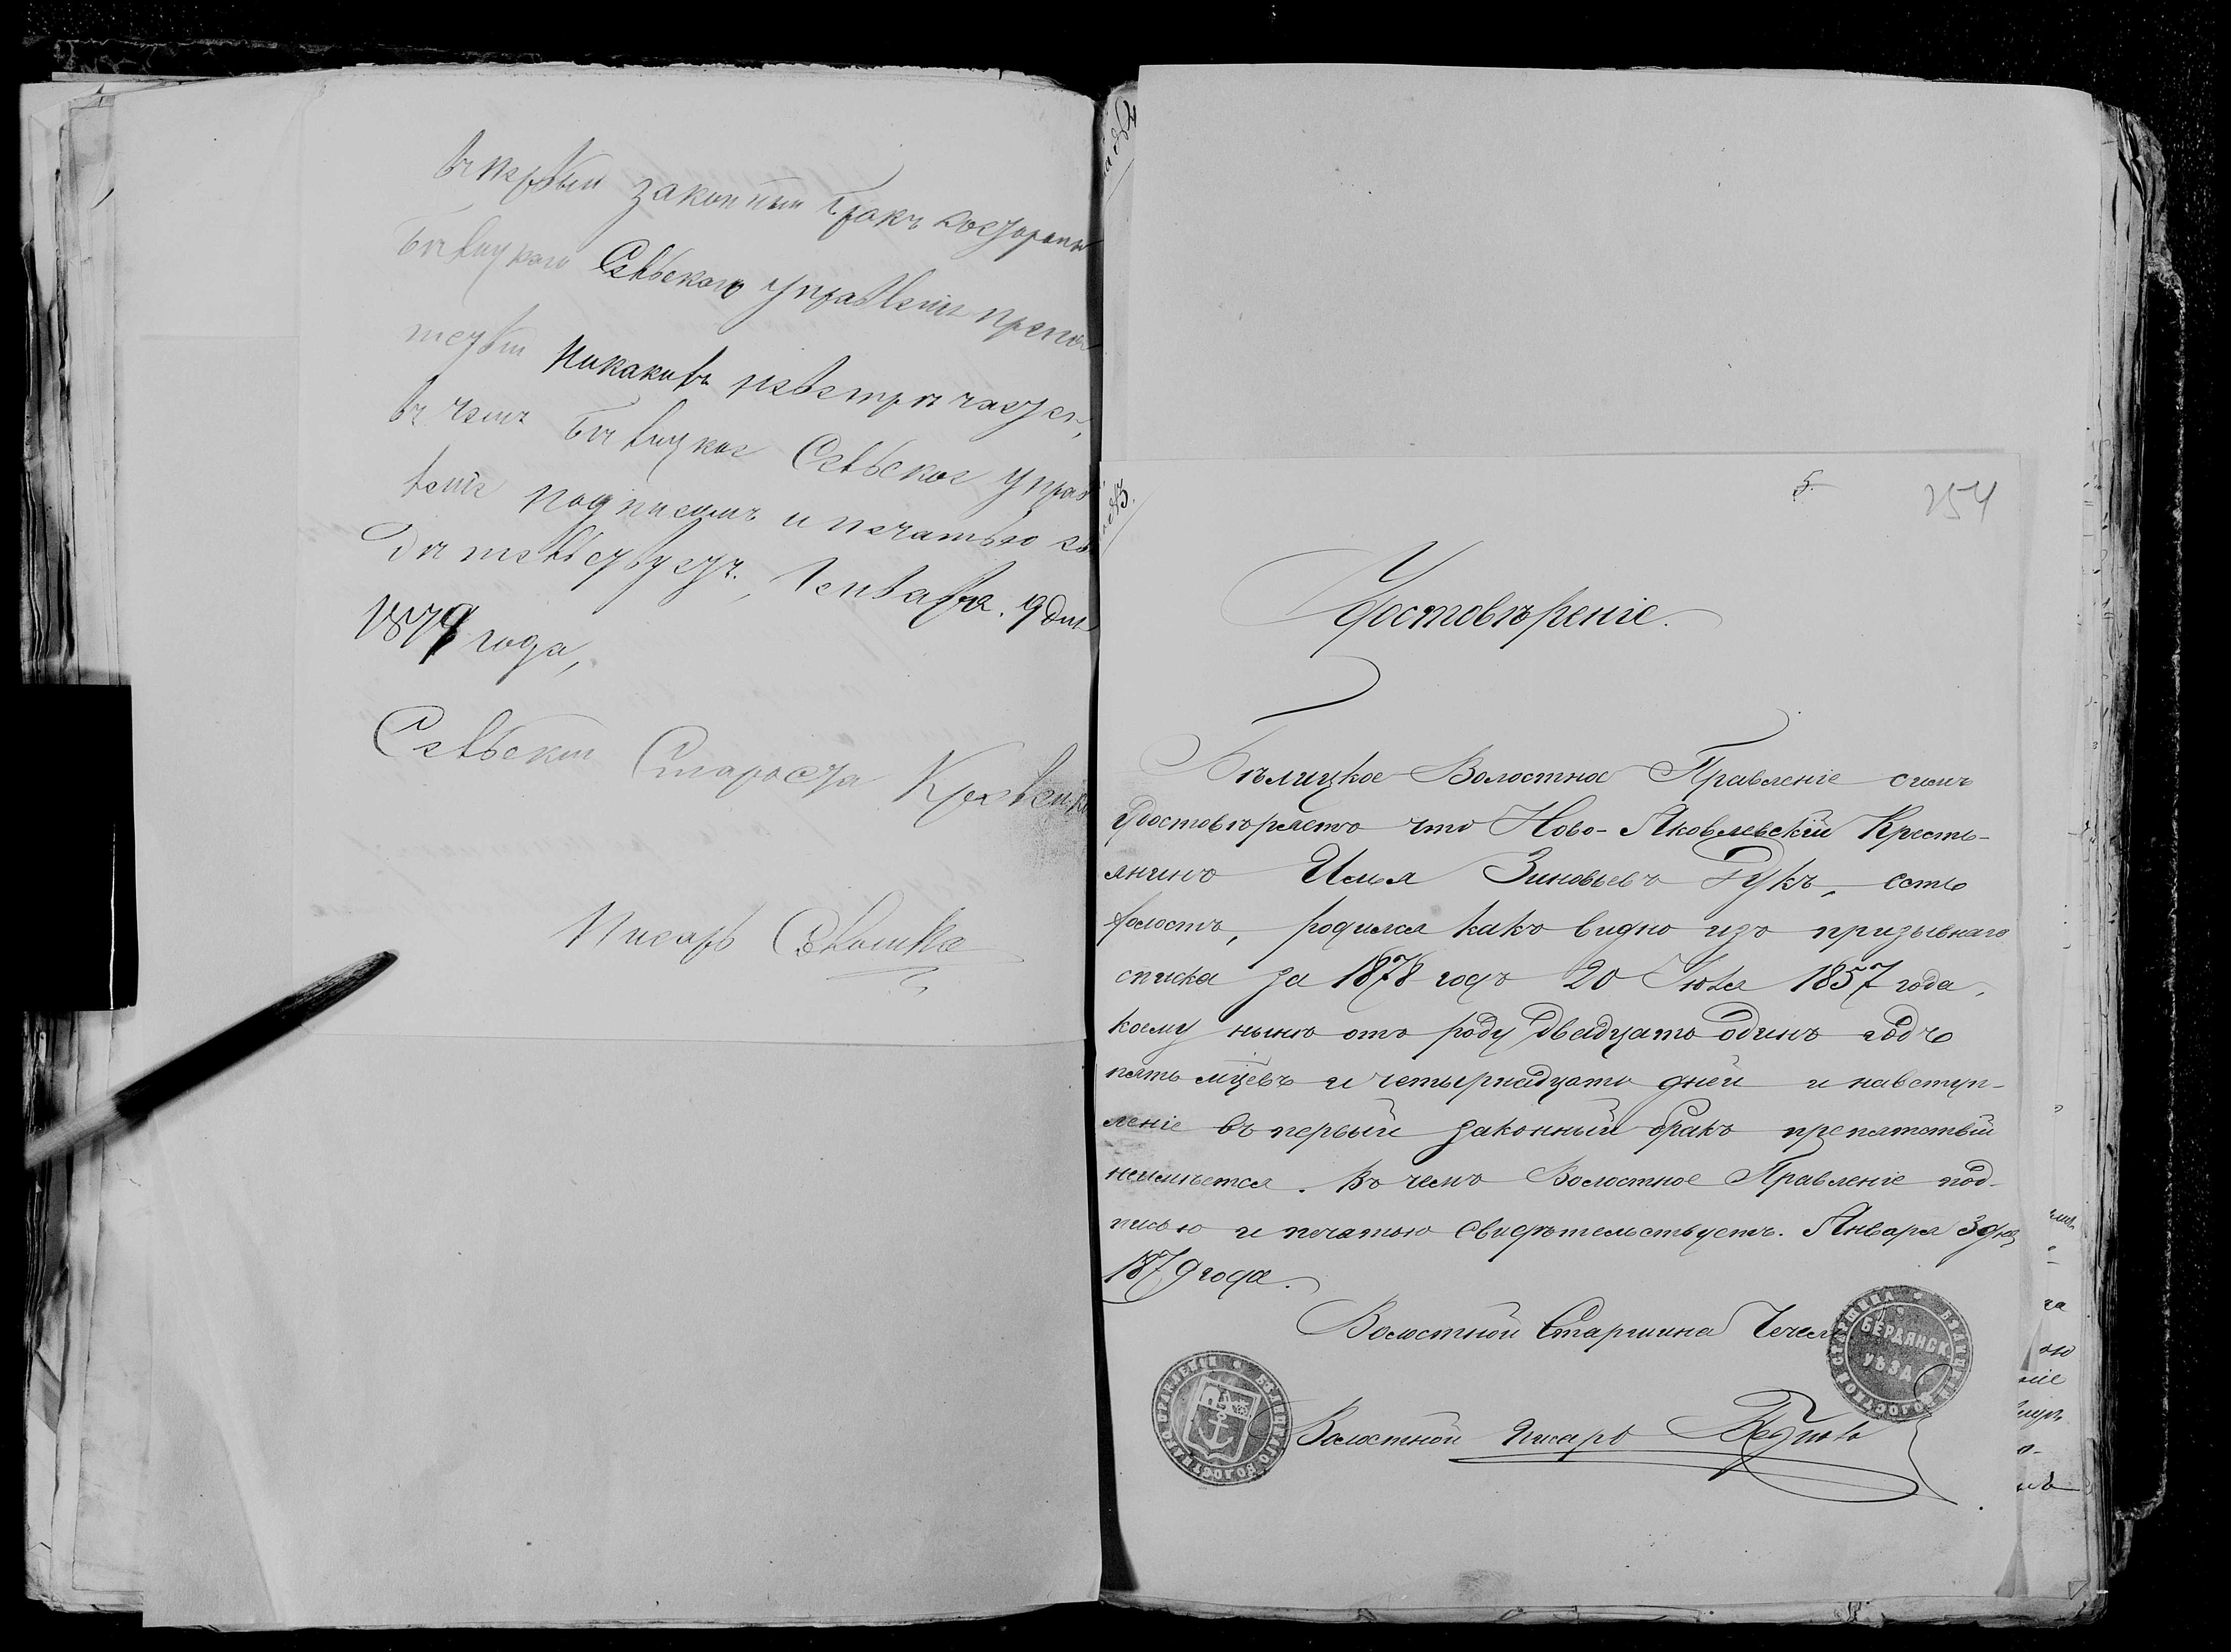 въ первый законный бракъ состороны
Бѣлицкаго Сельскаго управленія препя
тствій никакихъ невстрѣчается,
въ чемъ Бѣлицкое Сельское управ
леніе подписомъ и печатью сви
дѣтельствуетъ. Генваря. 9 дня
1879 года,
Сельскій Староста
Писарь
5.
254
Удостовѣреніе.
Бѣлицкое Волостное Правленіе симъ
удостовѣряетъ что Ново-Яковлевскій Кресть-
янинъ Илья Зиновьевъ Гукъ, есть
холостъ, родился какъ видно изъ призывнаго
списка за 1878 годъ 20 Іюля 1857 года,
коему нынѣ отъ роду двадцать одинъ годъ
пять мцевъ и четырнадцать дней и навступ-
леніе въ первый законный бракъ препятствій
неимѣется. Въ чемъ Волостное Правленіе под-
писью и печатью свидѣтельствуетъ. Января 3 дня
1879 года.
Волостной Старшина
БЕРДЯНСК УѢЗДА
Волостной писарь